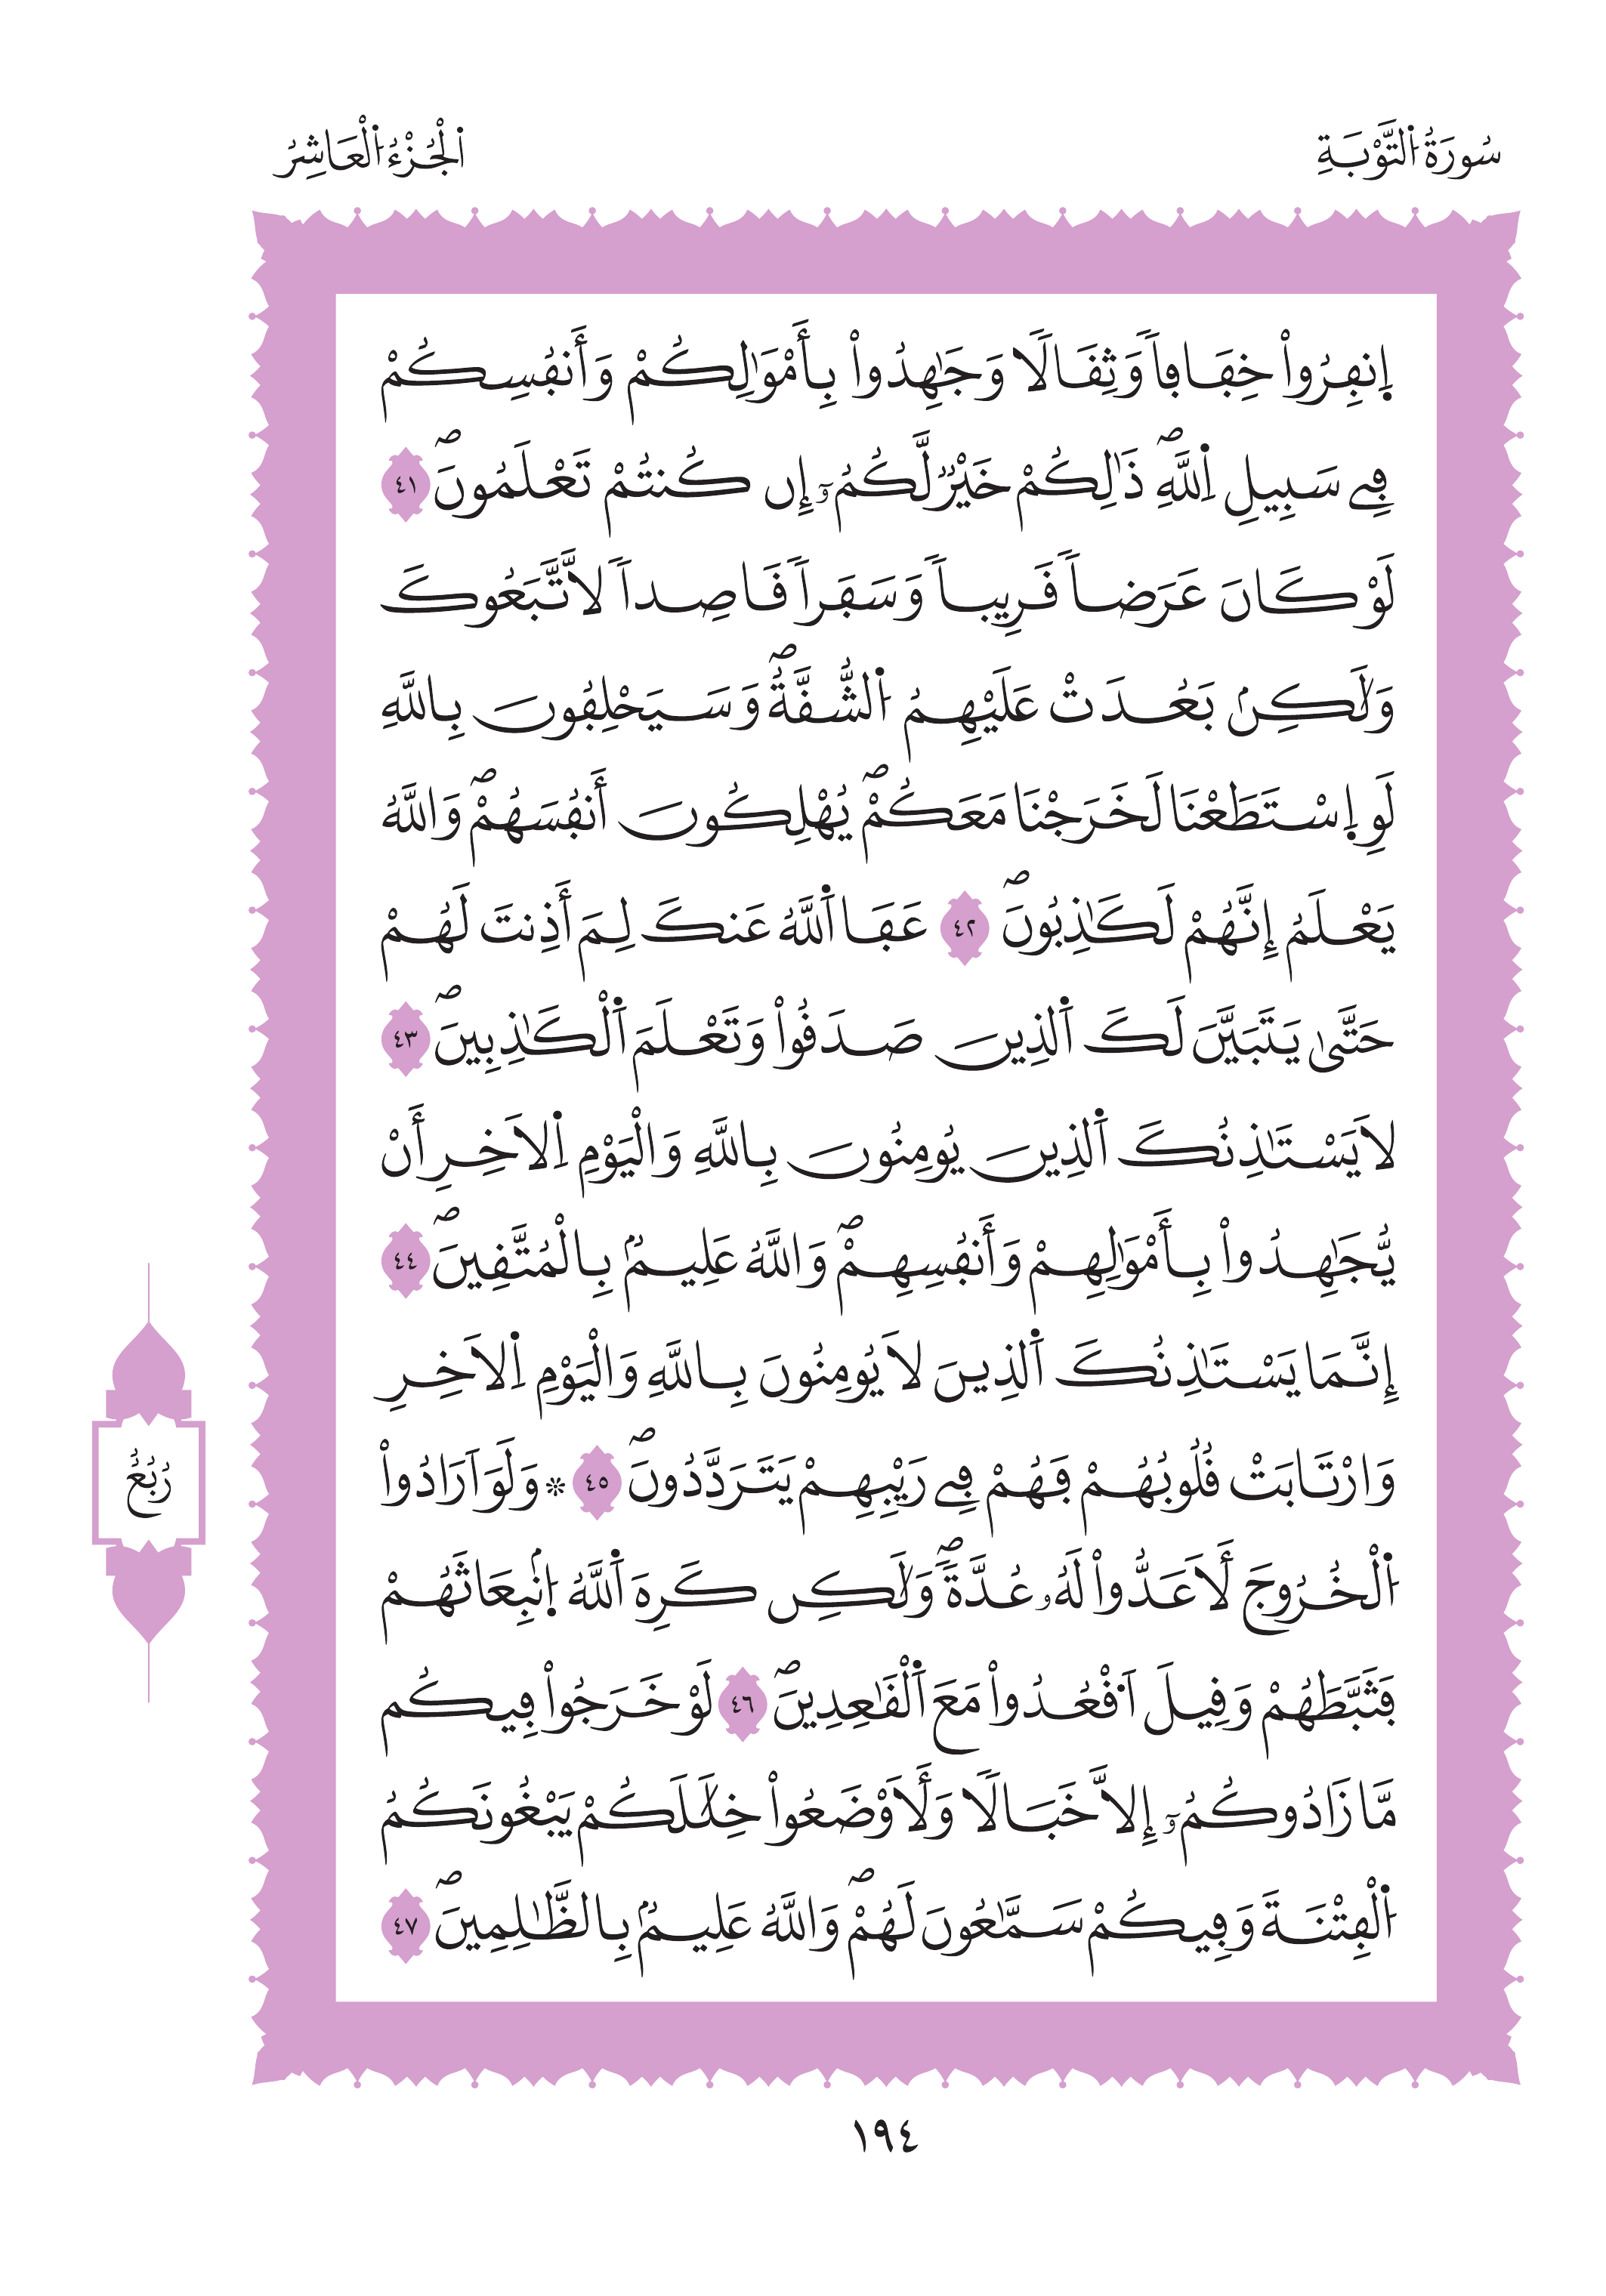 سُورَةُ اُ۬لتَّوْبَةِ
اُ۬لْجُزْءُ اُ۬لْعَاشِرُ
اِ۪نفِرُواْ خِفَافاٗ وَثِقَالاٗ وَجَٰهِدُواْ بِأَمْوَٰلِكُمْ وَأَنفُسِكُمْ
فِے سَبِيلِ اِ۬للَّهِۖ ذَٰلِكُمْ خَيْرٞ لَّكُمُۥٓ إِن كُنتُمْ تَعْلَمُونَۖ ٤١
لَوْ كَانَ عَرَضاٗ قَرِيباٗ وَسَفَراٗ قَاصِداٗ لَّاتَّبَعُوكَ
وَلَٰكِنۢ بَعُدَتْ عَلَيْهِمُ اُ۬لشُّقَّةُۖ وَسَيَحْلِفُونَ بِاللَّهِ
لَوِ اِ۪سْتَطَعْنَا لَخَرَجْنَا مَعَكُمْۖ يُهْلِكُونَ أَنفُسَهُمْۖ وَاللَّهُ
يَعْلَمُ إِنَّهُمْ لَكَٰذِبُونَۖ ٤٢ عَفَا اَ۬للَّهُ عَنكَ لِمَ أَذِنتَ لَهُمْ
حَتَّىٰ يَتَبَيَّنَ لَكَ اَ۬لذِينَ صَدَقُواْ وَتَعْلَمَ اَ۬لْكَٰذِبِينَۖ ٤٣
لَا يَسْتَٰذِنُكَ اَ۬لذِينَ يُومِنُونَ بِاللَّهِ وَالْيَوْمِ اِ۬لَاخِرِ أَنْ
يُّجَٰهِدُواْ بِأَمْوَٰلِهِمْ وَأَنفُسِهِمْۖ وَاللَّهُ عَلِيمُۢ بِالْمُتَّقِينَۖ ٤٤
إِنَّمَا يَسْتَٰذِنُكَ اَ۬لذِينَ لَا يُومِنُونَ بِاللَّهِ وَالْيَوْمِ اِ۬لَاخِرِ
وَارْتَابَتْ قُلُوبُهُمْ فَهُمْ فِے رَيْبِهِمْ يَتَرَدَّدُونَۖ ٤٥ ۞ وَلَوَ اَرَادُواْ
اُ۬لْخُرُوجَ لَأَعَدُّواْ لَهُۥ عُدَّةٗۖ وَلَٰكِن كَرِهَ اَ۬للَّهُ اُ۪نۢبِعَاثَهُمْ
فَثَبَّطَهُمْ وَقِيلَ اَ۟قْعُدُواْ مَعَ اَ۬لْقَٰعِدِينَۖ ٤٦ لَوْ خَرَجُواْ فِيكُم
مَّا زَادُوكُمُۥٓ إِلَّا خَبَالاٗ وَلَأَوْضَعُواْ خِلَٰلَكُمْ يَبْغُونَكُمُ
اُ۬لْفِتْنَةَ وَفِيكُمْ سَمَّٰعُونَ لَهُمْۖ وَاللَّهُ عَلِيمُۢ بِالظَّٰلِمِينَۖ ٤٧
رُبُعُ
١٩٤